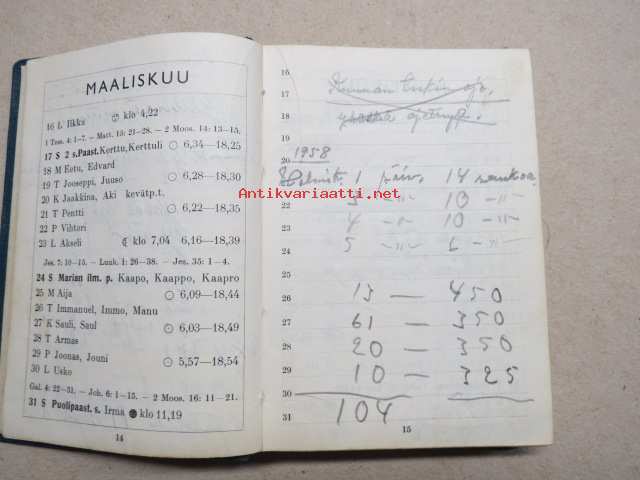 MAALISKUU
16 L Ilkka ☾ klo 4,22
1 Tess. 4: 1–7. – Matt. 15: 21–28. – 2 Moos. 14: 13–15.
17 S 2 s. Paast. Kerttu, Kerttuli ☉ 6,34—18,25
18 M Eetu, Edvard
19 T Jooseppi, Juuso ☉ 6,28—18,30
20 K Jaakkina, Aki kevätp.t.
21 T Pentti ☉ 6,22—18,35
22 P Vihtori
23 L Akseli ☾ klo 7,04 6,16—18,39
Jes. 7: 10–15. – Luuk. 1: 26–38. – Jes. 35: 1–4.
24 S Marian ilm. p. Kaapo, Kaappo, Kaapro
25 M Aija ☉ 6,09—18,44
26 T Immanuel, Immo, Manu
27 K Sauli, Saul ☉ 6,03—18,49
28 T Armas
29 P Joonas, Jouni ☉ 5,57—18,54
30 L Usko
Gal. 4: 22–31. – Joh. 6: 1–15. – 2 Moos. 16: 11–21.
31 S Puolipaast. s. Irma ● klo 11,19
14
16
17
18
1958
20
1 päiv. 14
22
10 -"-
4 -"- 10 -"-
5 -"- 6 -"-
25
13 — 450
26
61 — 350
27
28
20 — 350
29
10 — 325
30
31
104
15
Antikvariaatti.net